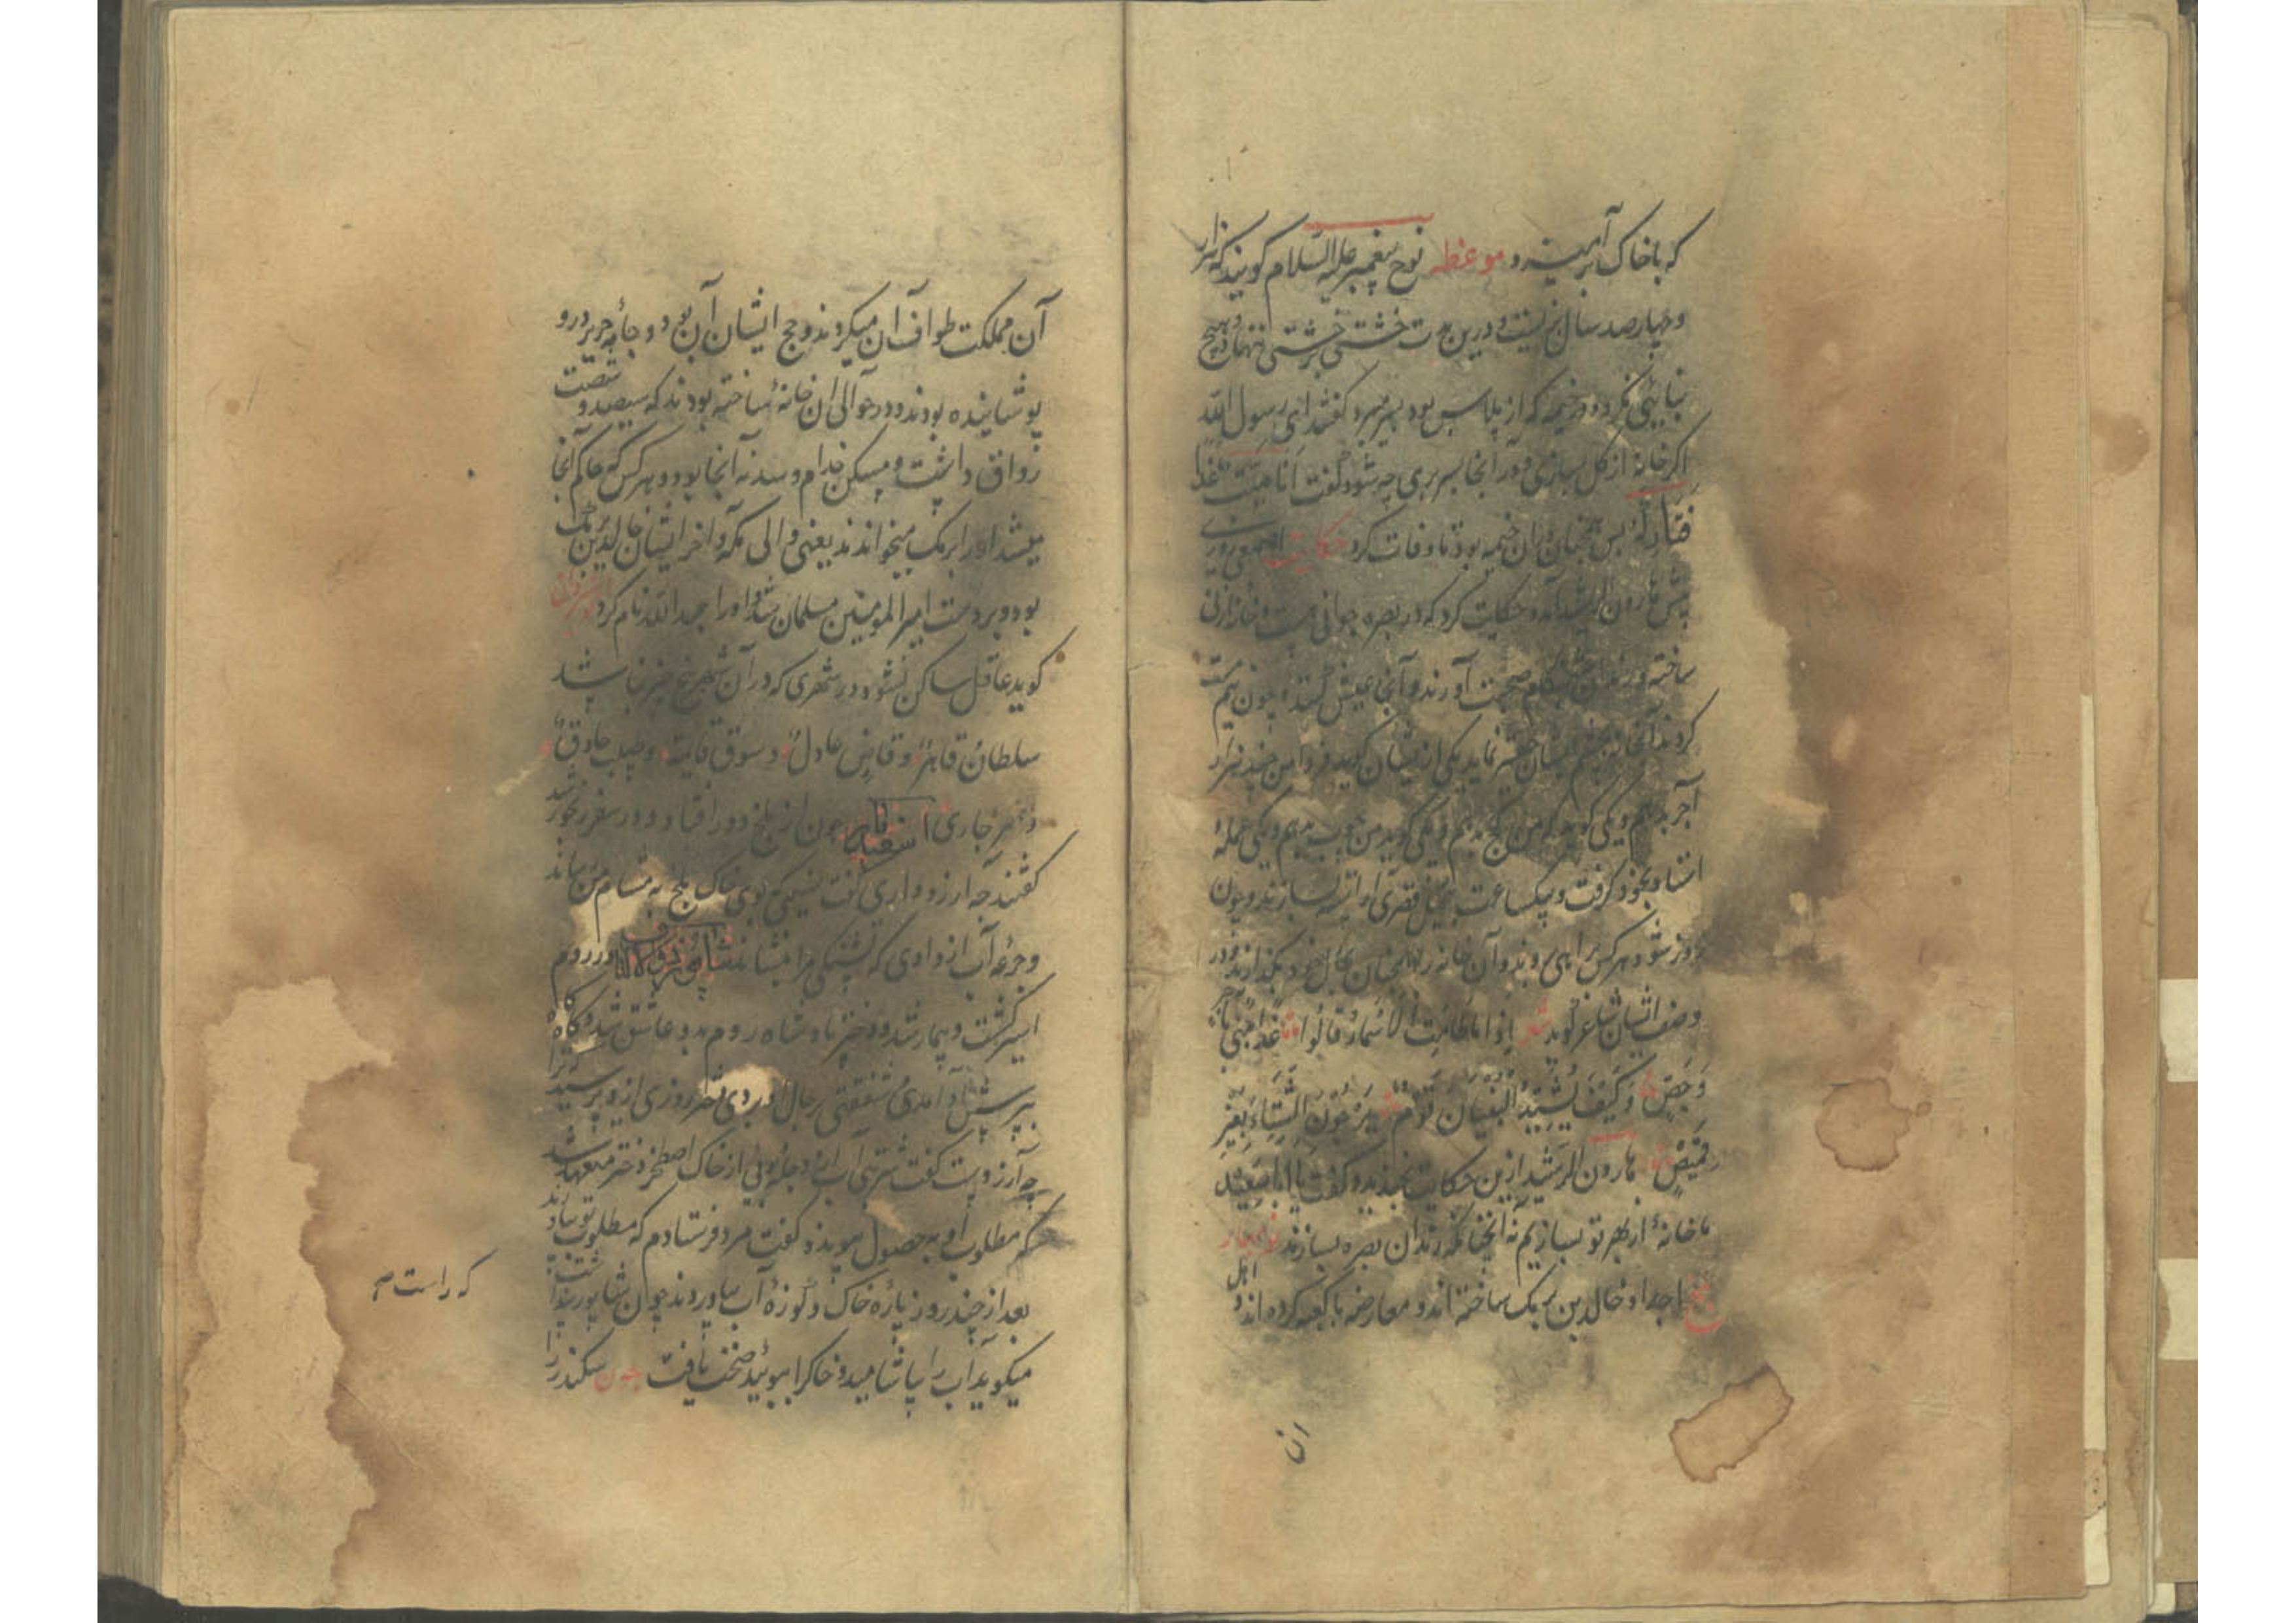 که باخاک برآمیزد موعظه نوح پیغمبر علیه السلام کویند که هزار
و چهارصد سال بزیست و درین مدت خشتی بر خشتی ننهاد و هیچ
بنایی نکرد و در خیمه که از پلاس بود بسر میبرد کفتند ای رسول الله
اکر خانه از کل بسازی و در آنجا بسر بری چه شود کفت انا میت غدا
پس همچنان در ان خیمه بود تا وفات کرد حکایت اصمعی روزی
پیش هارون الرشید آمد و حکایت کرد که در بصره جوانی هست و خانه از نی
ساخته و رندان هنکام صحبت آورند و آنجا عیش کنند و چون نیم مست
کردند آنخانه بچشم ایشان حقیر نماید یکی از ایشان کوید فردا من چند هزار
آجر بدهم و یکی کوید که من کج بدهم و یکی کوید من چوب میدهم و یکی عمله و
استاد بخود کرفت و بیکساعت
روز شود هر کس براهی روند و آن خانه را همچنان بحال خود بکذارند و در
وصف ایشان شاعر کوید شعر اذا ما طابت الاسمار قالوا غدا نبنی باجر
وجص وکیف یشید البنیان قوم یزجون الشتاء بغیر
قمیص هارون الرشید ازین حکایت بخندید و کفت یا ابا سعید
ما خانهٔ از بهر تو بسازیم نه آنچنانکه رندان بصره بسازند نوبهار
بلخ اجداد خالد بن برمک ساخته اند و معارضه با کعبه کرده اند و اهل
ان
آن مملکت طواف آن میکردند و حج ایشان آن بود و جامهٔ حریر درو
پوشانیده بودند و در حوالی ان خانهٔ ساخته بودند که سیصد و شصت
رواق داشت و مسکن خدام و سدنه آنجا بود و هر کس که حاکم آنجا
میشد او را برمک میخواندند یعنی والی مکه و اخر ایشان خالد بن برمک
بود و بر دست امیر المومنین مسلمان شد و اورا عبد الله نام کرد
کوید عاقل ساکن نشود در شهری که در آن شهر پنج چیز نباشد
سلطان قاهر و قاضی عادل و سوق قایمة و طبیب حاذق و
و نهر جاری اسفندیار چون از بلخ دور افتاد و در سفر رنجور شد
کفتند چه آرزو داری کفت نسیمی کی بوی خاک بلخ به مشام من رساند
و جرعه آب از وادی که تشنکی مرا بنشاند شاپور ذو الاکتاف در روم
اسیر کشت و بیمار شد و دختر پادشاه روم بدو عاشق شد و کاه کاه
بپرسش او آمدی شفقتی بر حال او بردی تا روزی ازو پرسید که ترا
چه آرزوست کفت شربتی آب دجله و بویی از خاک اصطخر دختر متعهد شد
که مطلوب او به حصول پیوندد کفت مرد فرستادم که مطلوب تو بیاورند
بعد از چند روز پارهٔ خاک و کوزهٔ آب بیاوردند چون شاپور
میکویند آب را بیاشامید و خاکرا ببویید صحت یافت چون سکندر را
که راست م